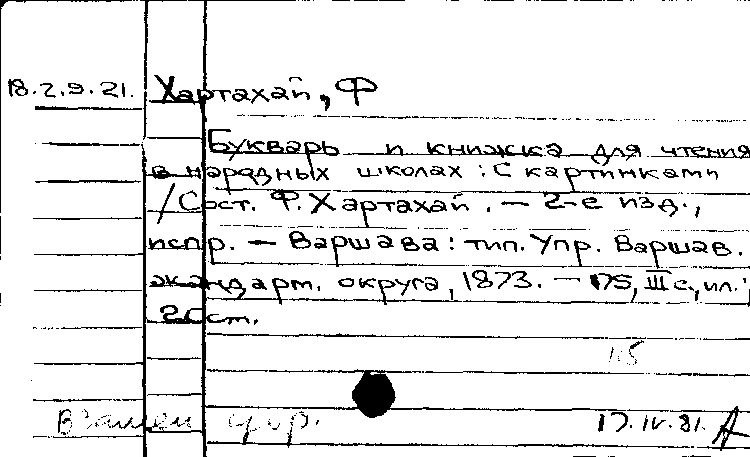 18.2.9.21. Хартахай, Ф
Букварь и книжка для чтения
в народных школах: С картинками
/Сост. Ф. Хартахай. — 2-е изд.,
испр. — Варшава: тип. Упр. Варшав.
жандарм. округа, 1873. — 175, III с., ил.;
20 см.
Взамен
17.IV.81.